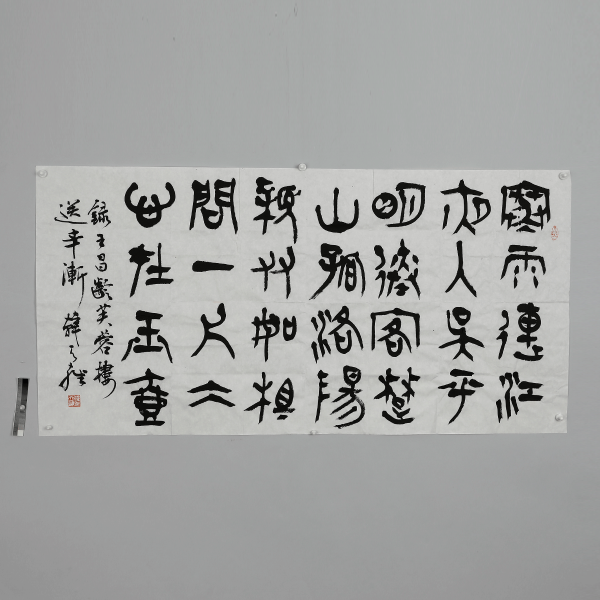 寒雨連江
夜入吳平
明送客楚
山孤洛陽
親友如相
問一片冰
心在玉壺
錄王昌齡芙蓉樓
送辛漸 薛